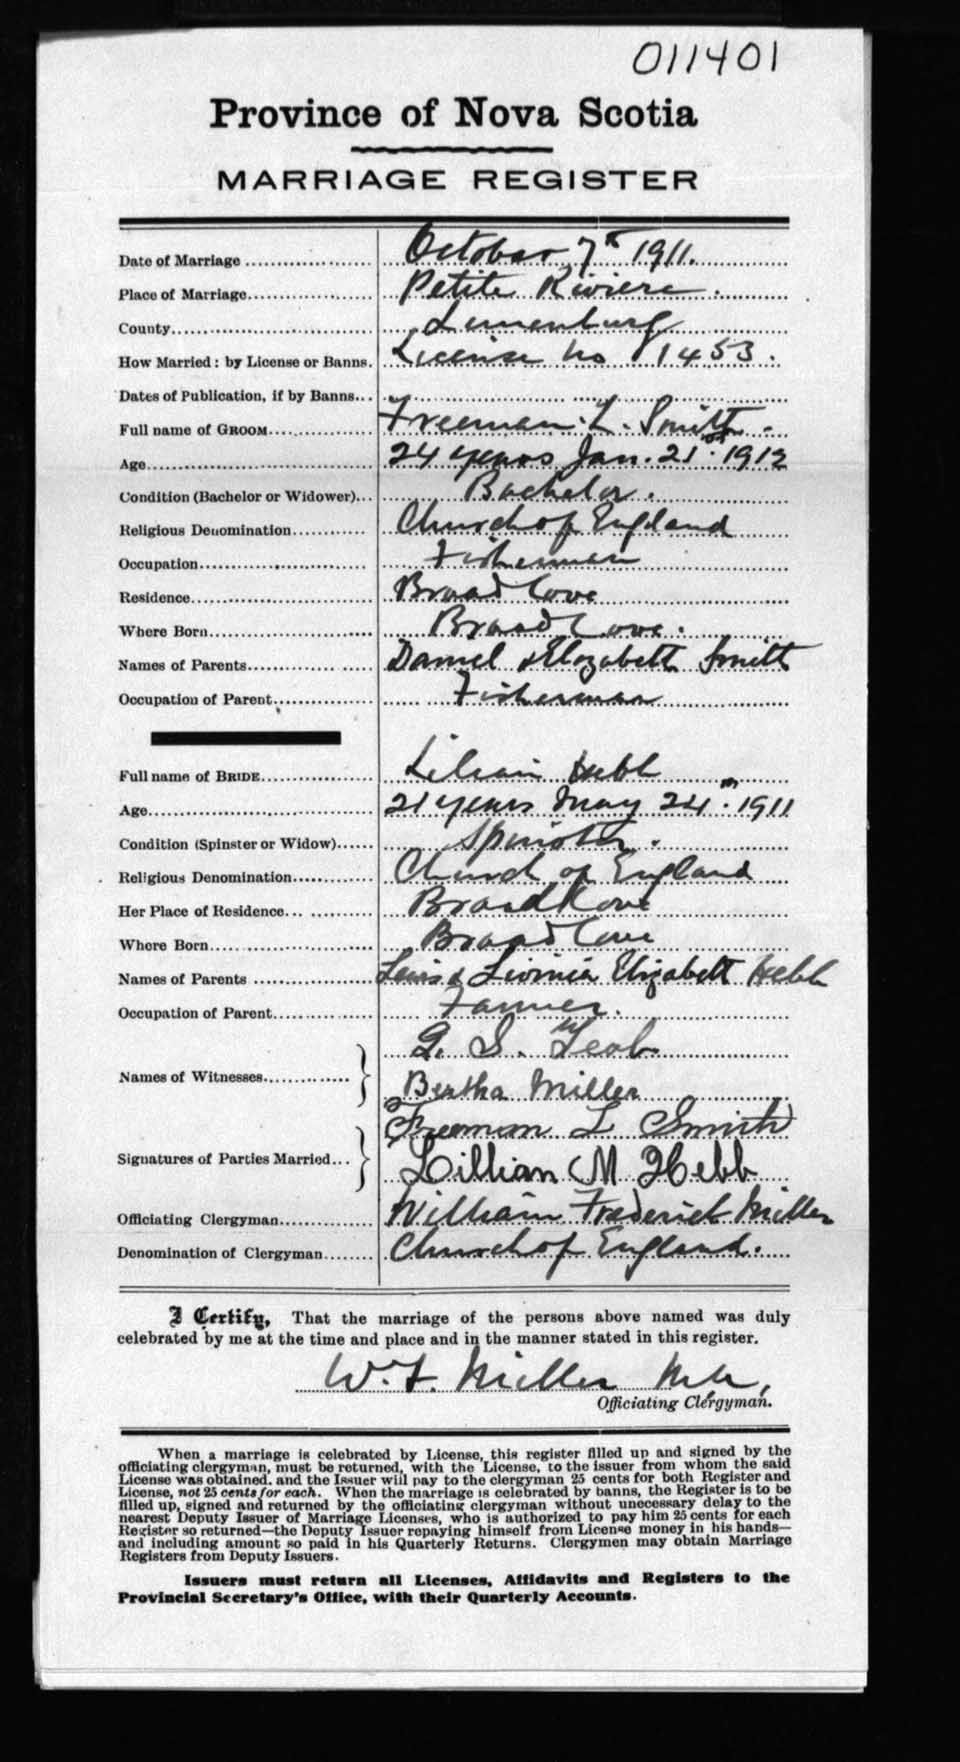 011401
Province of Nova Scotia
MARRIAGE REGISTER
Date of Marriage October 7th 1911.
Place of Marriage Petite Riviere.
County Lunenburg
How Married: by License or Banns. License no 11453.
Dates of Publication, if by Banns
Full name of GROOM Freeman L. Smith.
Age 24 years Jan. 21st 1912
Condition (Bachelor or Widower) Bachelor.
Religious Denomination Church of England
Occupation Fisherman
Residence Broad Cove
Where Born Broad Cove.
Names of Parents Daniel & Elizabeth Smith
Occupation of Parent Fisherman
Full name of BRIDE Lilian Hebb
Age 21 years May 24th 1911
Condition (Spinster or Widow) Spinster.
Religious Denomination Church of England
Her Place of Residence Broad Cove
Where Born Broad Cove
Names of Parents Lewis & Livinia Elizabeth Hebb
Occupation of Parent Farmer.
G. S.
Names of Witnesses
Bertha Miller
Freeman L Smith
Signatures of Parties Married
Lillian M Hebb
Officiating Clergyman William Frederick Miller
Denomination of Clergyman Church of England.
I Certify, That the marriage of the persons above named was duly
celebrated by me at the time and place and in the manner stated in this register.
W. F. Miller
Officiating Clergyman.
When a marriage is celebrated by License, this register filled up and signed by the
officiating clergyman, must be returned, with the License, to the issuer from whom the said
License was obtained, and the Issuer will pay to the clergyman 25 cents for both Register and
License, not 25 cents for each. When the marriage is celebrated by banns, the Register is to be
filled up, signed and returned by the officiating clergyman without unnecessary delay to the
nearest Deputy Issuer of Marriage Licenses, who is authorized to pay him 25 cents for each
Register so returned—the Deputy Issuer repaying himself from License money in his hands—
and including amount so paid in his Quarterly Returns. Clergymen may obtain Marriage
Registers from Deputy Issuers.
Issuers must return all Licenses, Affidavits and Registers to the
Provincial Secretary's Office, with their Quarterly Accounts.